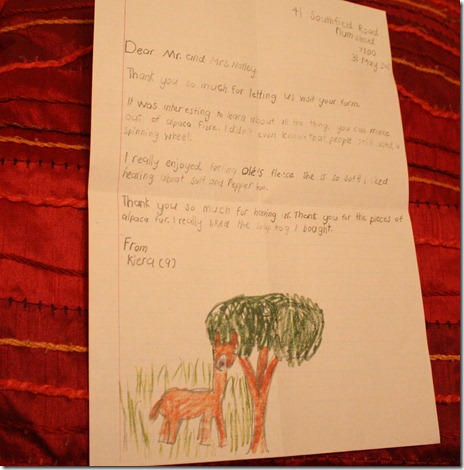 41 Southfield Road
7800
31 May
Dear Mr. and Mrs
Thank you so much for letting us visit your farm.
It was interesting to learn about all the things you can make
out of alpaca fibre. I didn't even know that people still used a
spinning wheel.
I really enjoyed feeling Olé's fleece. She is so soft! I liked
hearing about Salt and Pepper too.
Thank you so much for having us. Thank you for the pieces of
alpaca fur. I really liked the I bought.
From
Kiera (9)